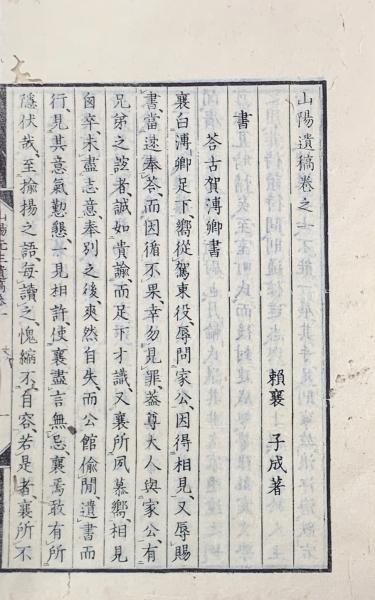 山陽遺稿卷之一
賴襄 子成著
書
答古賀溥卿書
襄白溥卿足下、嚮從駕東役、辱問家公、因得相見、又辱賜
書、當速奉答、而因循不果、幸勿見罪、蓋尊大人與家公、有
兄弟之誼者、誠如貴諭、而足下才識、又襄所夙慕嚮、相見
匆卒、未盡志意、奉別之後、爽然自失、而公館偸閒、遺書而
行、見其意氣懃懇、見相許使襄盡言無忌、襄焉敢有所
隱伏哉、至揄揚之語、每讀之愧縮不自容、若是者、襄所不